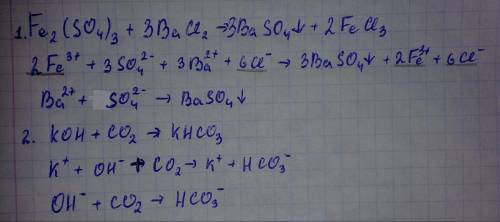 1. Fe₂(SO₄)₃ + 3BaCl₂ → 3BaSO₄↓ + 2FeCl₃
2Fe³⁺ + 3SO₄²⁻ + 3Ba²⁺ + 6Cl⁻ → 3BaSO₄↓ + 2Fe³⁺ + 6Cl⁻
Ba²⁺ + SO₄²⁻ → BaSO₄↓
2. KOH + CO₂ → KHCO₃
K⁺ + OH⁻ + CO₂ → K⁺ + HCO₃⁻
OH⁻ + CO₂ → HCO₃⁻